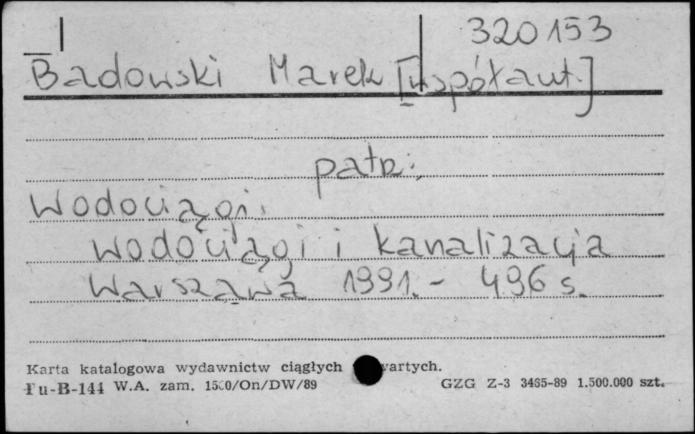 320153
Badowski Marek [współaut.]
patrz:
Wodociągi.
Wodociągi i kanalizacja
Warszawa 1991. - 496 s.
Karta katalogowa wydawnictw ciągłych wartych.
Pu-B-144 W.A. zam. 1500/On/DW/89 GZG Z-3 3485-89 1.500.000 szt.